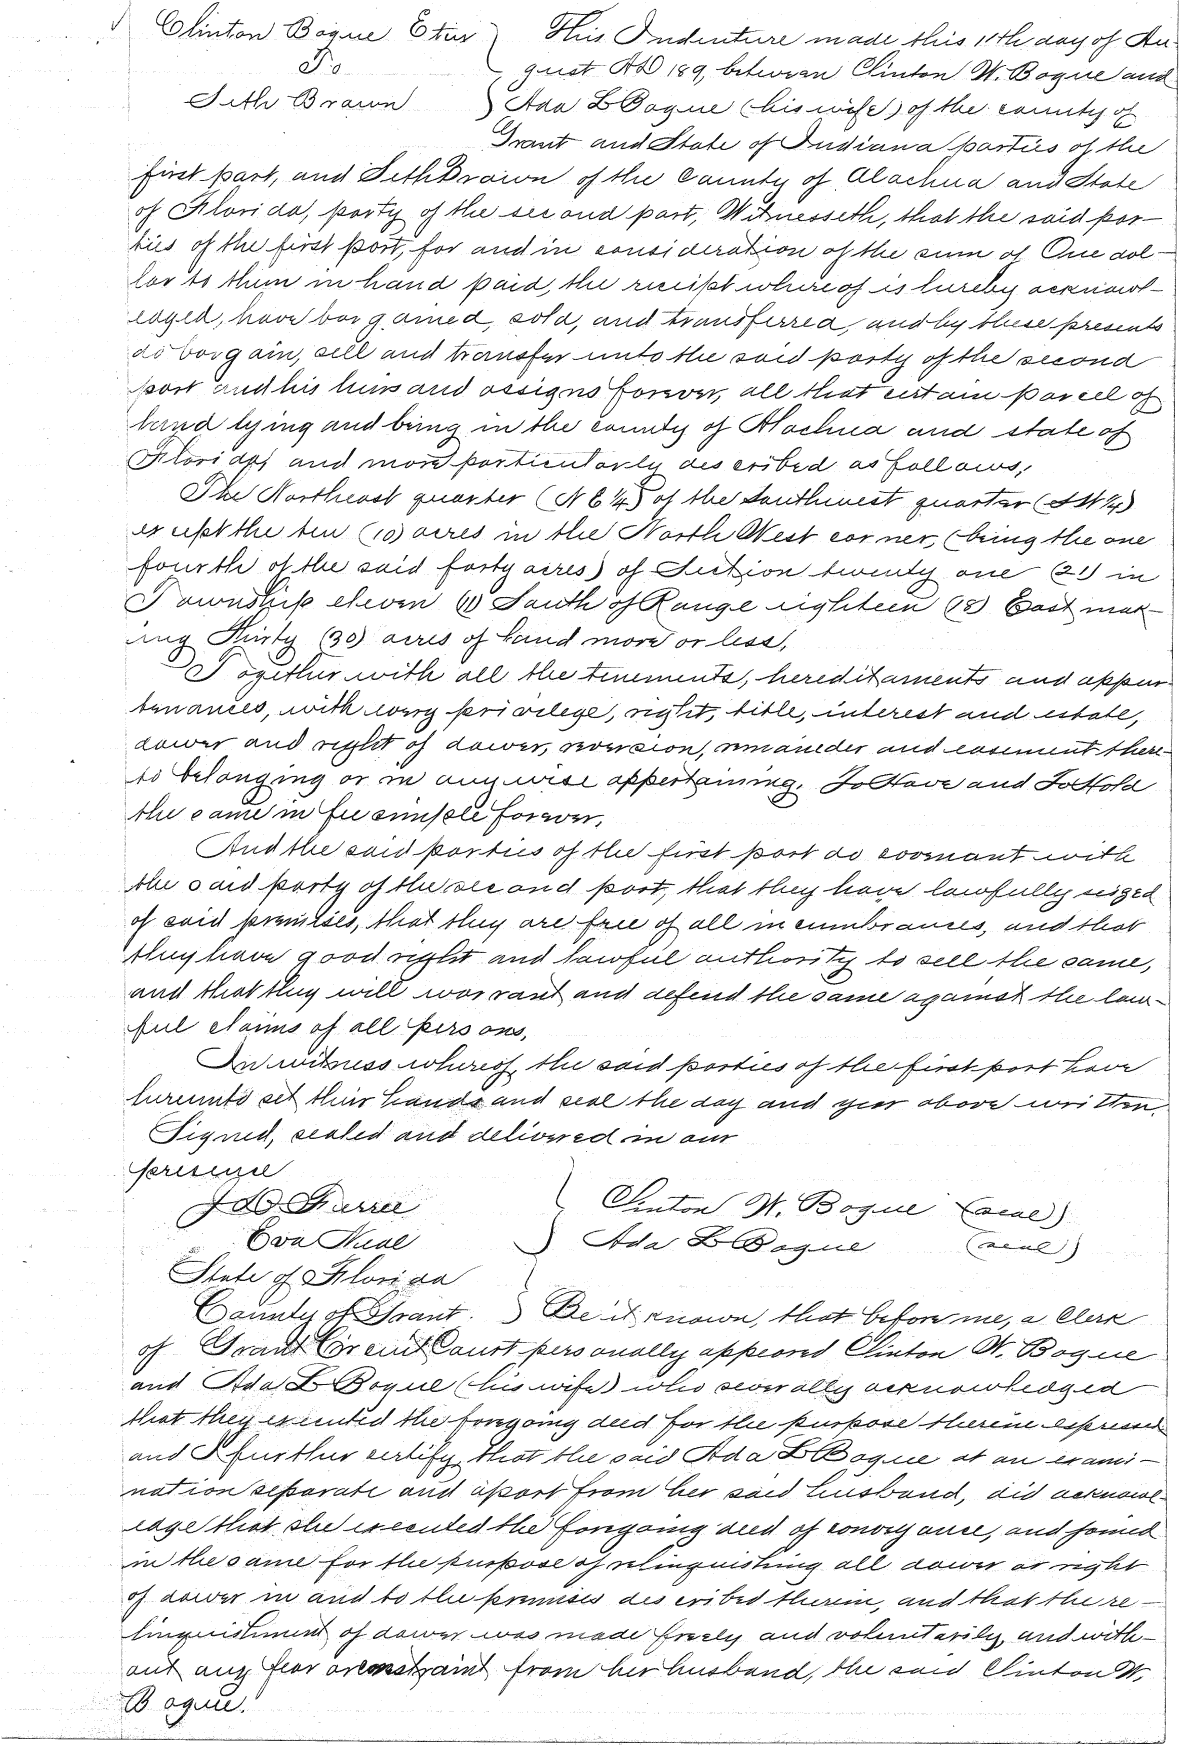 Clinton Bogue Etux
To
Seth Brown
This Indenture made this 11th day of Au-
gust AD 189, between Clinton W. Bogue and
Ada L Bogue (his wife) of the county of
Grant and State of Indiana parties of the
first part, and Seth Brown of the County of Alachua and State
of Florida, party of the second part, Witnesseth, that the said par-
ties of the first part, for and in consideration of the sum of One dol-
lar to them in hand paid, the receipt whereof is hereby acknowl-
edged, have bargained, sold, and transferred, and by these presents
do bargain, sell and transfer unto the said party of the second
part and his heirs and assigns forever, all that certain parcel of
land lying and being in the county of Alachua and state of
Florida, and more particularly described as follows;
The Northeast quarter (NE 1/4) of the Southwest quarter (SW 1/4)
except the ten (10) acres in the North West corner, (being the one
fourth of the said forty acres) of Section twenty one (21) in
Township eleven (11) South of Range eighteen (18) East mak-
ing Thirty (30) acres of land more or less,
Together with all the tenements, hereditaments and appur-
tenances, with every privilege, right, title, interest and estate,
dower and right of dower, reversion, remainder and easement there-
to belonging or in anywise appertaining. To Have and To Hold
the same in fee simple forever.
And the said parties of the first part do covenant with
the said party of the second part, that they have lawfully seized
of said premises, that they are free of all incumbrances, and that
they have good right and lawful authority to sell the same,
and that they will warrant and defend the same against the law-
ful claims of all persons.
In witness whereof, the said parties of the first part have
hereunto set their hands and seal the day and year above written.
Signed, sealed and delivered in our
presence
Eva Neal
Clinton W. Bogue (seal)
Ada L Bogue (seal)
State of Florida
County of Grant. Be it known, that before me, a Clerk
of Grant Circuit Court personally appeared Clinton W. Bogue
and Ada L Bogue (his wife) who severally acknowledged
that they executed the foregoing deed for the purpose therein expressed
and I further certify that the said Ada L Bogue at an exami-
nation separate and apart from her said husband, did acknowl-
edge that she executed the foregoing deed of conveyance, and joined
in the same for the purpose of relinquishing all dower or right
of dower in and to the premises described therein, and that the re-
linquishment of dower was made freely and voluntarily, and with-
out any fear or constraint from her husband, the said Clinton W.
Bogue.